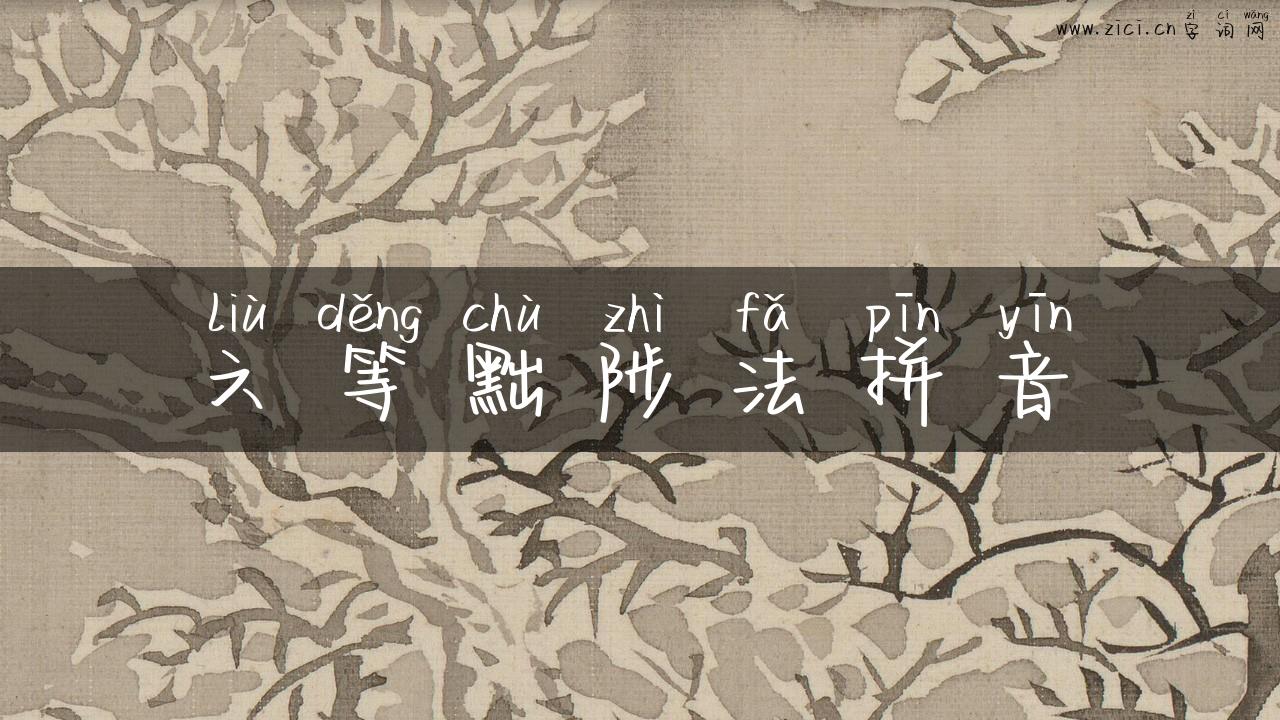 zì cí wǎng
www.zici.cn字词网
liù děng chù zhì fǎ pīn yīn
六等黜陟法拼音